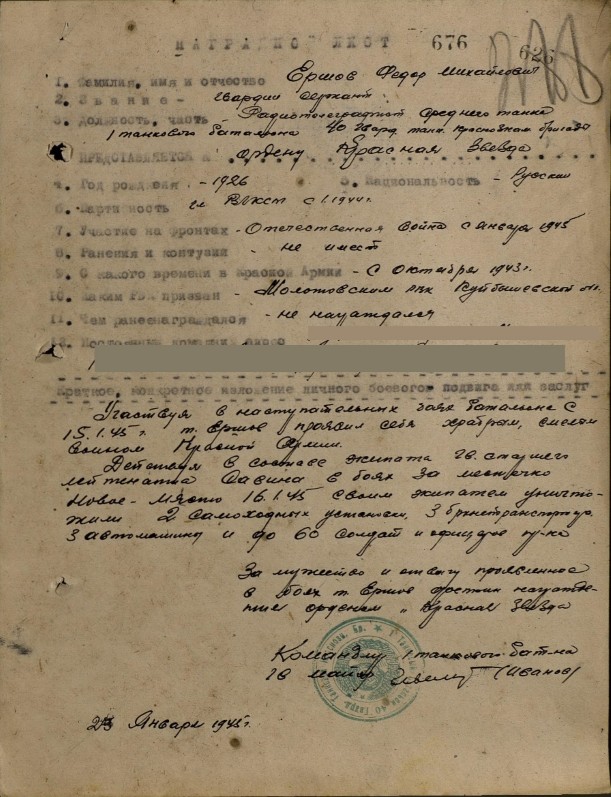 НАГРАДНОЙ ЛИСТ 676 626
1. Фамилия, имя и отчество Ершов Федор Михайлович
2. Звание - гвардии сержант
3. Должность, часть Радиотелеграфист среднего танка
1 танкового батальона 40 гвард. танк. Краснознам бригады
ПРЕДСТАВЛЯЕТСЯ к ордену Красная Звезда
4. Год рождения - 1926 5. Национальность - Русский
6. Партийность чл ВЛКСМ с 1.1944г.
7. Участие на фронтах - Отечественная война с января 1945
8. Ранения и контузии - не имеет
9. С какого времени в Красной Армии - С октября 1943г.
10. Каким РВК призван - Молотовским рвк Куйбышевской обл.
11. Чем ранее награждался - не награждался
Краткое, конкретное изложение личного боевого подвига или заслуг
Участвуя в наступательных боях батальона с
15.1.45г. т. Ершов проявил себя храбрым, смелым
воином Красной Армии.
Действуя в составе экипажа гв. старшего
лейтенанта Савина в боях за местечко
Новое-Място 16.1.45 своим экипажем уничто-
жили 2 самоходных установки, 3 бронетранспортера
3 автомашины и до 60 солдат и офицеров пр-ка
За мужество и отвагу проявленное
в боях т. Ершов достоин награжде-
ния орденом „Красная Звезда
Командир 1 танкового бат-на
гв майор (Иванов)
23 Января 1945г.